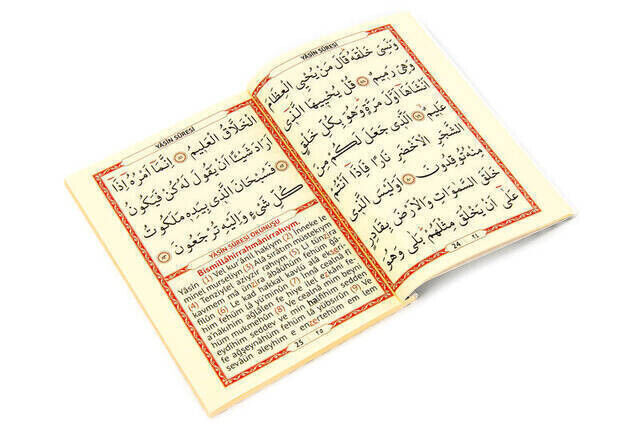 YÂSÎN SÛRESİ
وَنَسِيَ خَلْقَهُ قَالَ مَنْ يُحْيِي الْعِظَامَ
وَهِيَ رَمِيمٌ ﴿٧٨﴾ قُلْ يُحْيِيهَا الَّذِٓي
اَنْشَاَهَٓا اَوَّلَ مَرَّةٍ وَهُوَ بِكُلِّ خَلْقٍ
عَلِيمٌ ﴿٧٩﴾ اَلَّذِي جَعَلَ لَكُمْ مِنَ
الشَّجَرِ الْاَخْضَرِ نَارًا فَاِذَٓا اَنْتُمْ
مِنْهُ تُوقِدُونَ ﴿٨٠﴾ اَوَلَيْسَ الَّذِي
خَلَقَ السَّمٰوَاتِ وَالْاَرْضَ بِقَادِرٍ
عَلٰٓى اَنْ يَخْلُقَ مِثْلَهُمْ بَلٰى وَهُوَ
24 ٢٤
YÂSÎN SÛRESİ
الْخَلَّاقُ الْعَلِيمُ ﴿٨١﴾ اِنَّمَٓا اَمْرُهُٓ اِذَٓا
اَرَادَ شَيْئًا اَنْ يَقُولَ لَهُ كُنْ فَيَكُونُ
﴿٨٢﴾ فَسُبْحَانَ الَّذِي بِيَدِهِ مَلَكُوتُ
كُلِّ شَيْءٍ وَاِلَيْهِ تُرْجَعُونَ ﴿٨٣﴾
YÂSİN SÛRESİ OKUNUŞU
Bismillâhirrahmânirrahıym.
Yâsîn (1) Vel kur'ânil hakiym. (2) İnneke le
minel murseliyn (3) Alâ sıratım müstekıym
(4) Tenziylel aziyzir rahıym (5) Li tünzira
kavmem mâ ünzira âbâühüm fehüm ğâ
filûn (6) Le kad hakkal kavlü alâ ekserih
him fehüm lâ yü'minûn (7) İnnâ cealnâ fî
a'nâkıhim ağlâlen fe hiye ilel ezkâni fe-
hüm mukmehûn (8) Ve cealnâ mim beyni
eydîhim seddev ve min halfihim sedden
fe ağşeynâhüm fehüm lâ yübsirûn (9) Ve
sevâün aleyhim e enzertehüm em lem
25 ٢٥